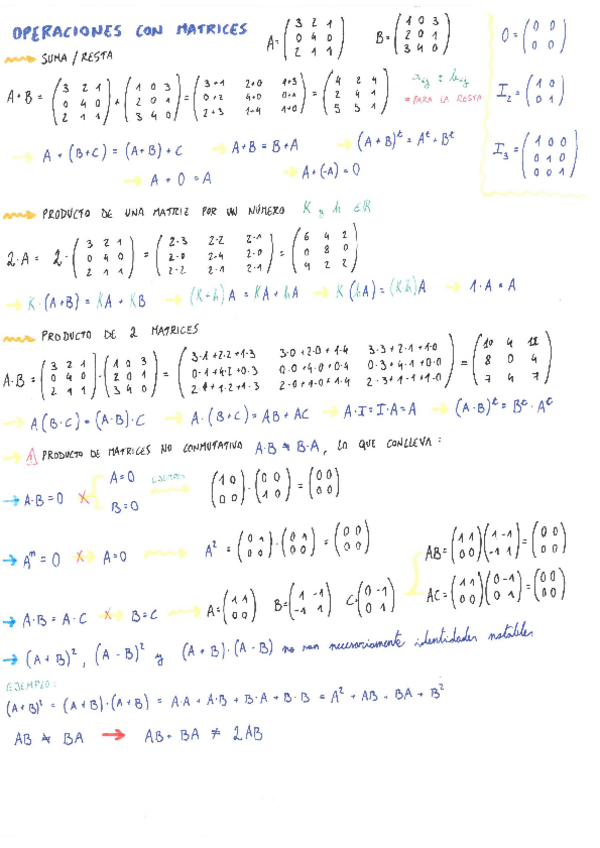 OPERACIONES CON MATRICES A=(3 2 1 / 0 4 0 / 2 1 1) B=(1 0 3 / 2 0 1 / 3 4 0) O=(0 0 / 0 0)
SUMA / RESTA
A+B = (3 2 1 / 0 4 0 / 2 1 1) + (1 0 3 / 2 0 1 / 3 4 0) = (3+1 2+0 1+3 / 0+2 4+0 0+1 / 2+3 1+4 1+0) = (4 2 4 / 2 4 1 / 5 5 1) = PARA LA RESTA I₂=(1 0 / 0 1)
A+(B+C) = (A+B)+C A+B = B+A (A+B)ᵗ = Aᵗ+Bᵗ I₃=(1 0 0 / 0 1 0 / 0 0 1)
A+O = A A+(-A) = O
PRODUCTO DE UNA MATRIZ POR UN NÚMERO K y h ∈ R
2·A = 2·(3 2 1 / 0 4 0 / 2 1 1) = (2·3 2·2 2·1 / 2·0 2·4 2·0 / 2·2 2·1 2·1) = (6 4 2 / 0 8 0 / 4 2 2)
K·(A+B) = KA + KB (K+h)A = KA+hA K(hA) = (Kh)A 1·A = A
PRODUCTO DE 2 MATRICES
A·B = (3 2 1 / 0 4 0 / 2 1 1)·(1 0 3 / 2 0 1 / 3 4 0) = (3·1+2·2+1·3 3·0+2·0+1·4 3·3+2·1+1·0 / 0·1+4·2+0·3 0·0+4·0+0·4 0·3+4·1+0·0 / 2·1+1·2+1·3 2·0+1·0+1·4 2·3+1·1+1·0) = (10 4 11 / 8 0 4 / 7 4 7)
A·(B·C) = (A·B)·C A·(B+C) = AB+AC A·I = I·A = A (A·B)ᵗ = Bᵗ·Aᵗ
PRODUCTO DE MATRICES NO CONMUTATIVO A·B ≠ B·A, LO QUE CONLLEVA:
A·B=0 X A=0 B=0 (1 0 / 0 0)·(0 0 / 1 0) = (0 0 / 0 0)
Aⁿ=0 X A=0 A² = (0 1 / 0 0)·(0 1 / 0 0) = (0 0 / 0 0) AB=(1 1 / 0 0)(1 -1 / -1 1)=(0 0 / 0 0)
A·B=A·C X B=C A=(1 1 / 0 0) B=(1 -1 / -1 1) C=(0 -1 / 0 1) AC=(1 1 / 0 0)(0 -1 / 0 1)=(0 0 / 0 0)
(A+B)², (A-B)² y (A+B)·(A-B) no son necesariamente identidades notables
EJEMPLO:
(A+B)² = (A+B)·(A+B) = A·A + A·B + B·A + B·B = A² + AB + BA + B²
AB ≠ BA → AB+BA ≠ 2AB